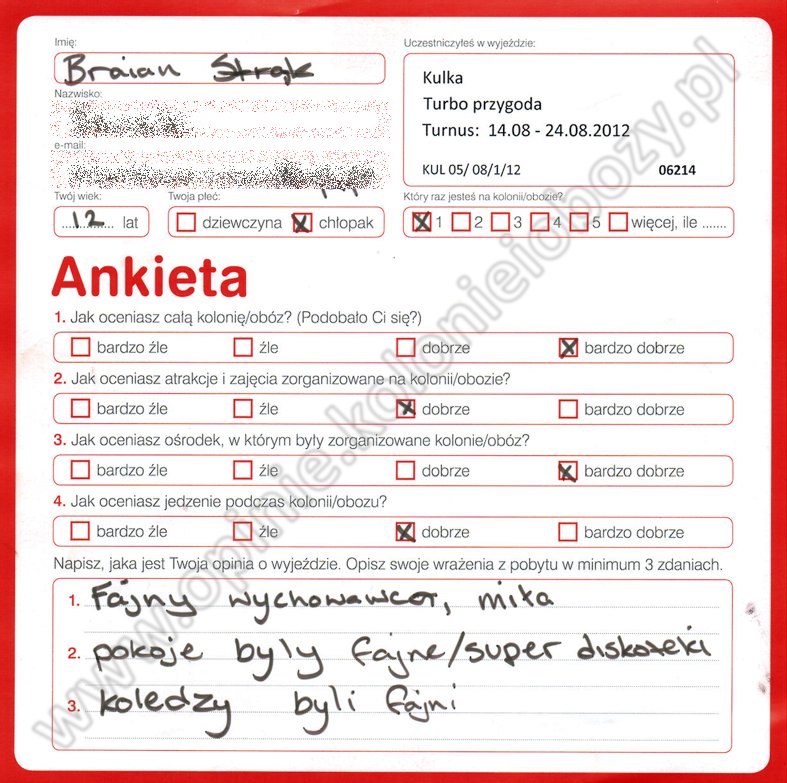 Imię:
Braian Strajk
Nazwisko:
e-mail:
Twój wiek:
12 lat
Twoja płeć:
dziewczyna chłopak
Uczestniczyłeś w wyjeździe:
Kulka
Turbo przygoda
Turnus: 14.08 - 24.08.2012
KUL 05/ 08/1/12 06214
Który raz jesteś na kolonii/obozie?
1 2 3 4 5 więcej, ile .......
Ankieta
1. Jak oceniasz całą kolonię/obóz? (Podobało Ci się?)
bardzo źle źle dobrze bardzo dobrze
2. Jak oceniasz atrakcje i zajęcia zorganizowane na kolonii/obozie?
bardzo źle źle dobrze bardzo dobrze
3. Jak oceniasz ośrodek, w którym były zorganizowane kolonie/obóz?
bardzo źle źle dobrze bardzo dobrze
4. Jak oceniasz jedzenie podczas kolonii/obozu?
bardzo źle źle dobrze bardzo dobrze
Napisz, jaka jest Twoja opinia o wyjeździe. Opisz swoje wrażenia z pobytu w minimum 3 zdaniach.
1. Fajny wychowawca, miła
2. pokoje były fajne/super diskoteki
3. koledzy byli fajni
www.opinie.kolonieiobozy.pl